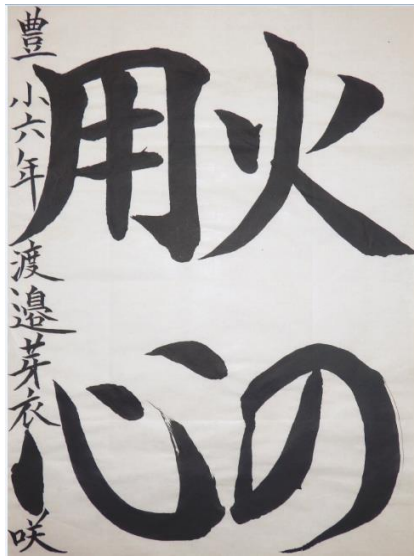 火の
用心
豊小六年渡邉芽衣咲